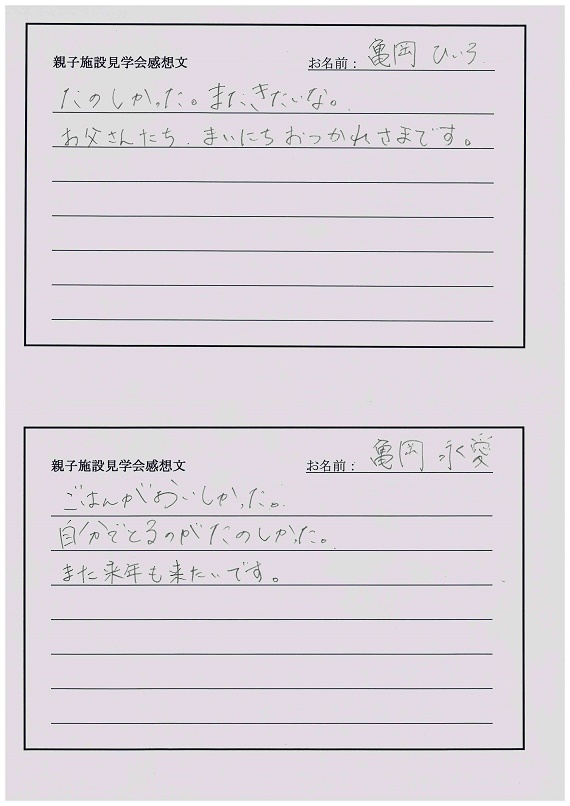 親子施設見学会感想文 お名前： 亀岡 ひいろ
たのしかった。またきたいな。
お父さんたち、まいにちおつかれさまです。
親子施設見学会感想文 お名前： 亀岡 永愛
ごはんがおいしかった。
自分でとるのがたのしかた。
また来年も来たいです。